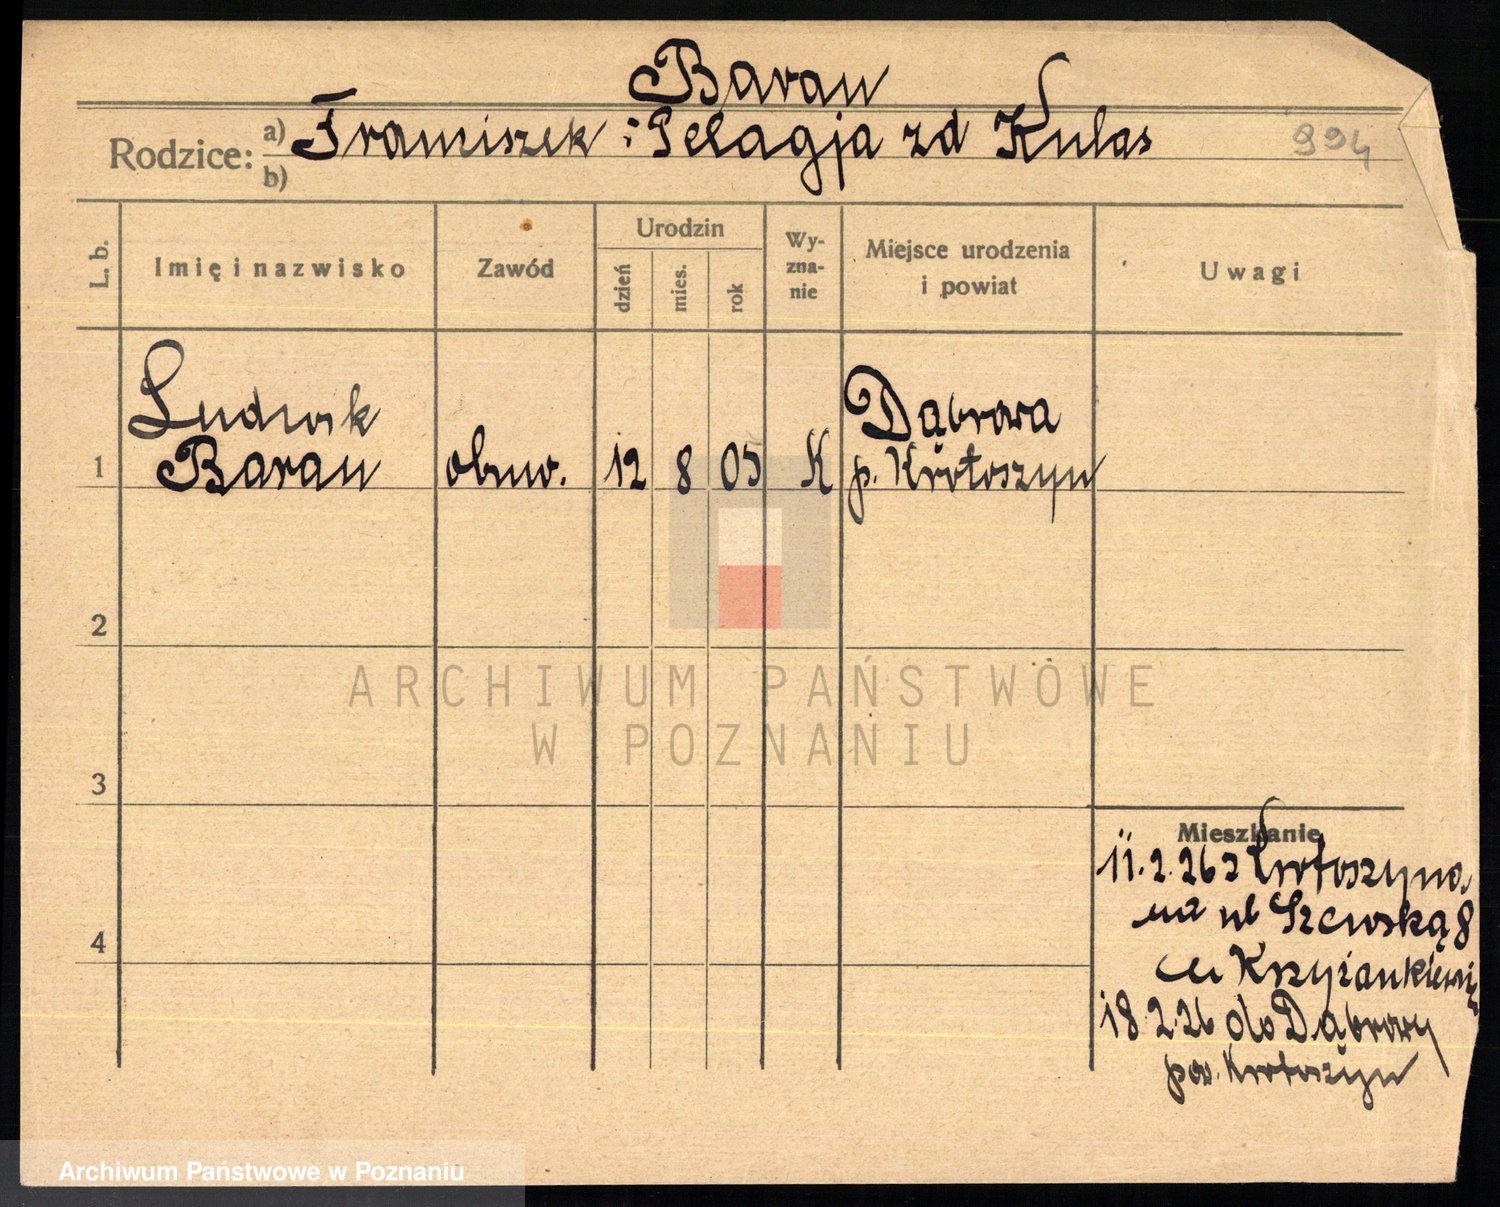 Baran
Rodzice: a) Franciszek i Pelagja zd Kulas
b)
994
L. b.
Imię i nazwisko
Zawód
Urodzin
dzień
mies.
rok
Wy-
zna-
nie
Miejsce urodzenia
i powiat
Uwagi
1
Ludwik
Baran
obuw.
12 8 05 K
Dąbrowa
p. Krotoszyn
2
3
4
ARCHIWUM PAŃSTWOWE
W POZNANIU
Mieszkanie
11.2.26 z Krotoszyna
na ul Szewską 8
18.2.26 do Dąbrowy
pow. Krotoszyn
Archiwum Państwowe w Poznaniu